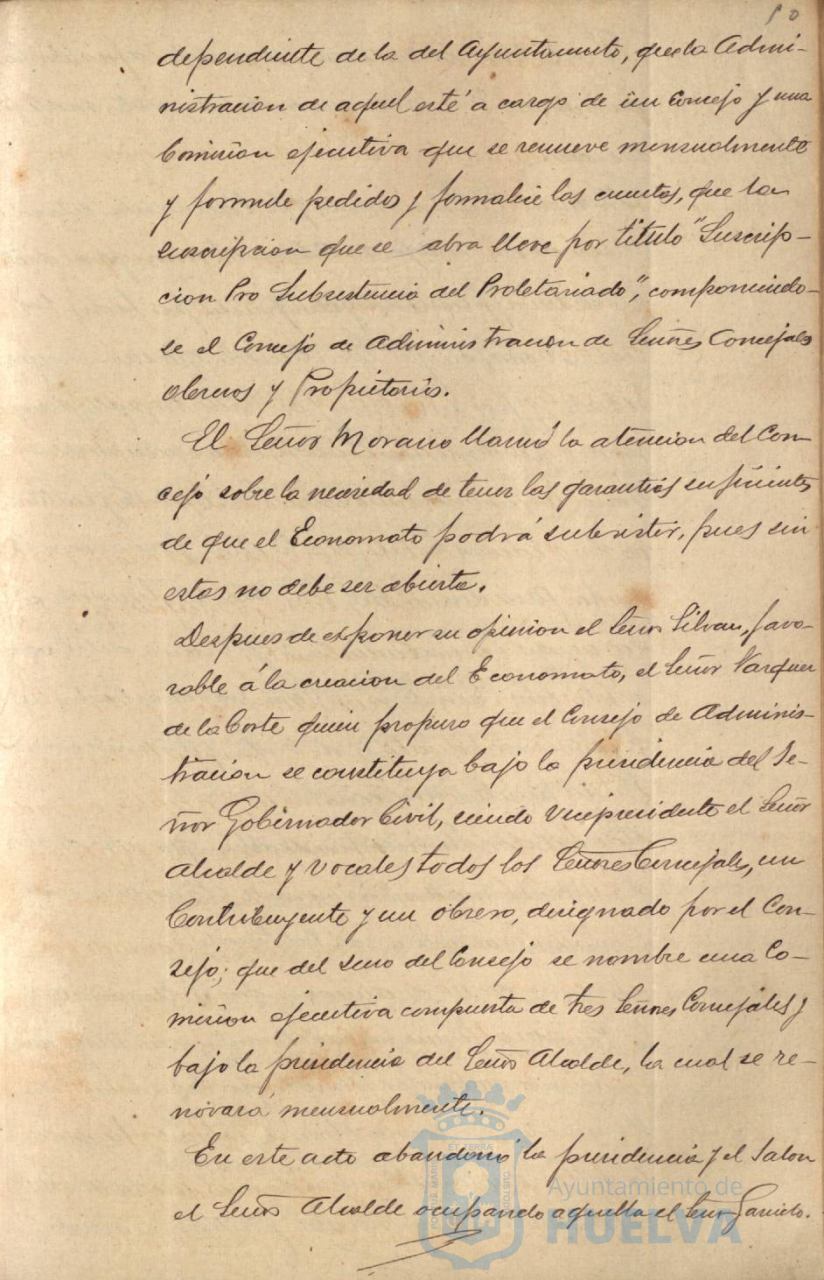 10
dependiente de la del Ayuntamiento, que la Admi-
nistracion de aquel esté á cargo de un Concejo y una
Comision ejecutiva que se renueve mensualmente
y formule pedidos y formalice las cuentas, que la
suscripcion que se abra lleve por titulo "Suscrip-
cion Pro Subsistencia del Proletariado", componiendo-
se el Concejo de Administracion de Señores Concejales
obreros y Propietarios.
El Señor Morano llamó la atencion del Con-
cejo sobre la necesidad de tener las garantias suficientes
de que el Economato podrá subsistir, pues sin
estas no debe ser abierta.
Despues de exponer su opinion el Señor Silvan, favo-
rable á la creacion del Economato, el Señor Vazquez
de la Corte quien propuso que el Consejo de Adminis-
tracion se constituya bajo la presidencia del Se-
ñor Gobernador Civil, siendo Vicepresidente el Señor
Alcalde y vocales todos los Señores Concejales, un
Contribuyente y un obrero, designado por el Con-
sejo; que del seno del Consejo se nombre una Co-
mision ejecutiva compuesta de tres Señores Concejales y
bajo la presidencia del Señor Alcalde, la cual se re-
novará mensualmente.
En este acto abandonó la presidencia y el Salon
el Señor Alcalde ocupando aquella el Señor Garrido.
Ayuntamiento de
HUELVA